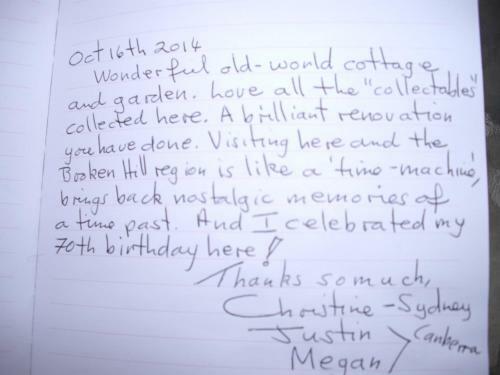 Oct 16th 2014
Wonderful old-world cottage
and garden. Love all the "collectables"
collected here. A brilliant renovation
you have done. Visiting here and the
Broken Hill region is like a 'time-machine',
brings back nostalgic memories of
a time past. And I celebrated my
70th birthday here!
Thanks so much,
Christine - Sydney
Justin
Canberra
Megan